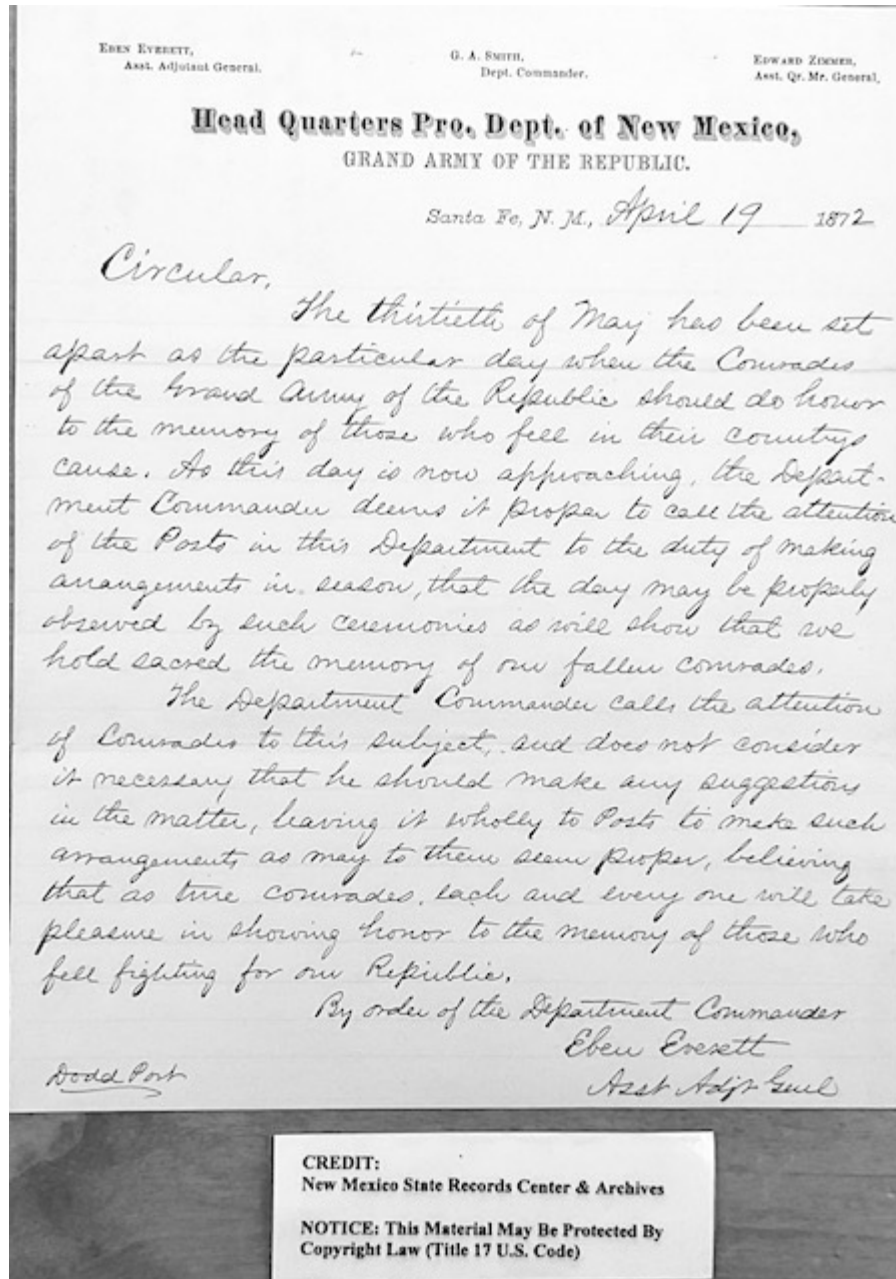 EBEN EVERETT,
Asst. Adjutant General.
G. A. SMITH,
Dept. Commander.
EDWARD ZIMMER,
Asst. Qr. Mr. General,
Head Quarters Pro. Dept. of New Mexico,
GRAND ARMY OF THE REPUBLIC.
Santa Fe, N. M., April 19 1872
Circular,
The thirtieth of May has been set
apart as the particular day when the Comrades
of the Grand Army of the Republic should do honor
to the memory of those who fell in their countrys
cause. As this day is now approaching, the Depart-
ment Commander deems it proper to call the attention
of the Posts in this Department to the duty of making
arrangements in season, that the day may be properly
observed by such ceremonies as will show that we
hold sacred the memory of our fallen comrades.
The Department Commander calls the attention
of Comrades to this subject, and does not consider
it necessary that he should make any suggestions
in the matter, leaving it wholly to Posts to make such
arrangements as may to them seem proper, believing
that as true comrades, each and every one will take
pleasure in showing honor to the memory of those who
fell fighting for our Republic.
By order of the Department Commander
Eben Everett
Asst Adjt Genl
Dodd Post
CREDIT:
New Mexico State Records Center & Archives
NOTICE: This Material May Be Protected By
Copyright Law (Title 17 U.S. Code)